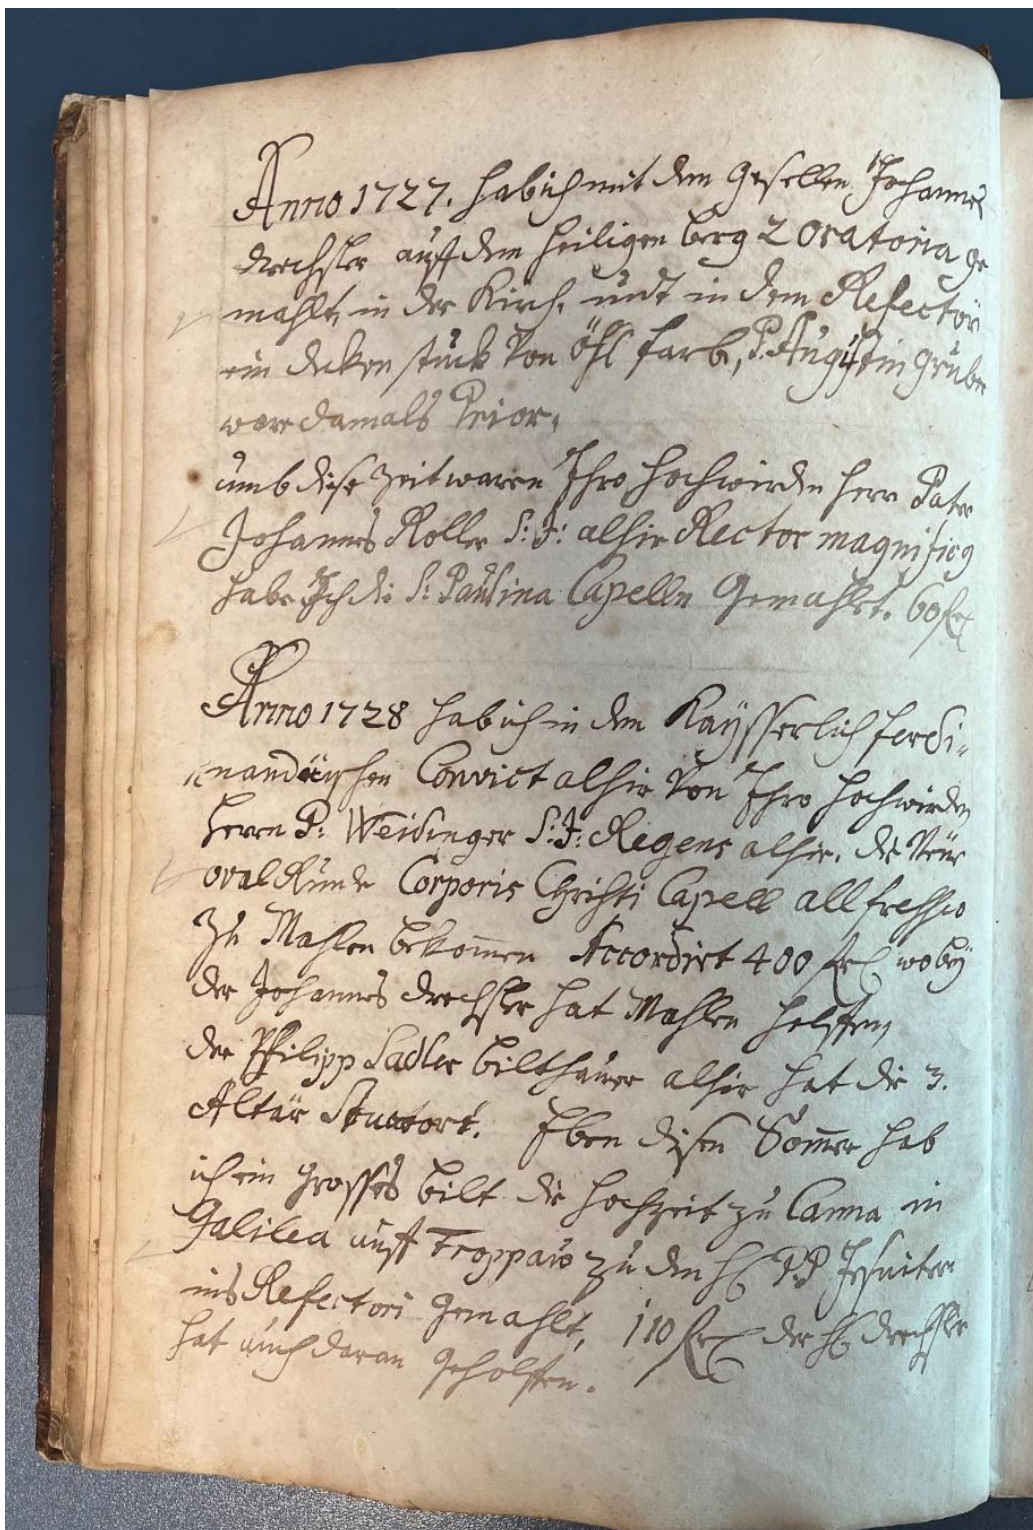 Anno 1727. hab ich mit dem Gesellen Johannes
drechsler auff dem heiligen berg 2 Oratoria ge
mahlt, in der Kirch, undt in dem Refectori
ein decken stuck von öhl farb, P. Augustin Gruber
ware damals Prior,
umb dise zeit waren Ihro hochwirden herr Pater
Johannes Roller S: J: alhir Rector magnificq
habe Ich die S: Paulina Capelln Gemahlt. 60 fl
Anno 1728 hab ich in dem Kaysserlich ferdi-
nandäischen Convict alhir von Ihro hochwirden
herrn P: Weidinger S: J: Regens alhir, die Neue
oval Runde Corporis Christi Capell all fressco
zu Mahlen bekom̄en Accordirt 400 fl wobey
der Johannes drechsler hat Mahlen helffen,
der Philipp Sadler bilthauer alhir hat die 3.
Altär Stuctort. Eben disen Som̄er hab
ich ein grosses bilt die hochzeit zu Canna in
Galilea auff Troppau zu den H P.P Jesuitern
ins Refectori gemahlt, 110 fl der H drechsler
hat auch daran geholffen.